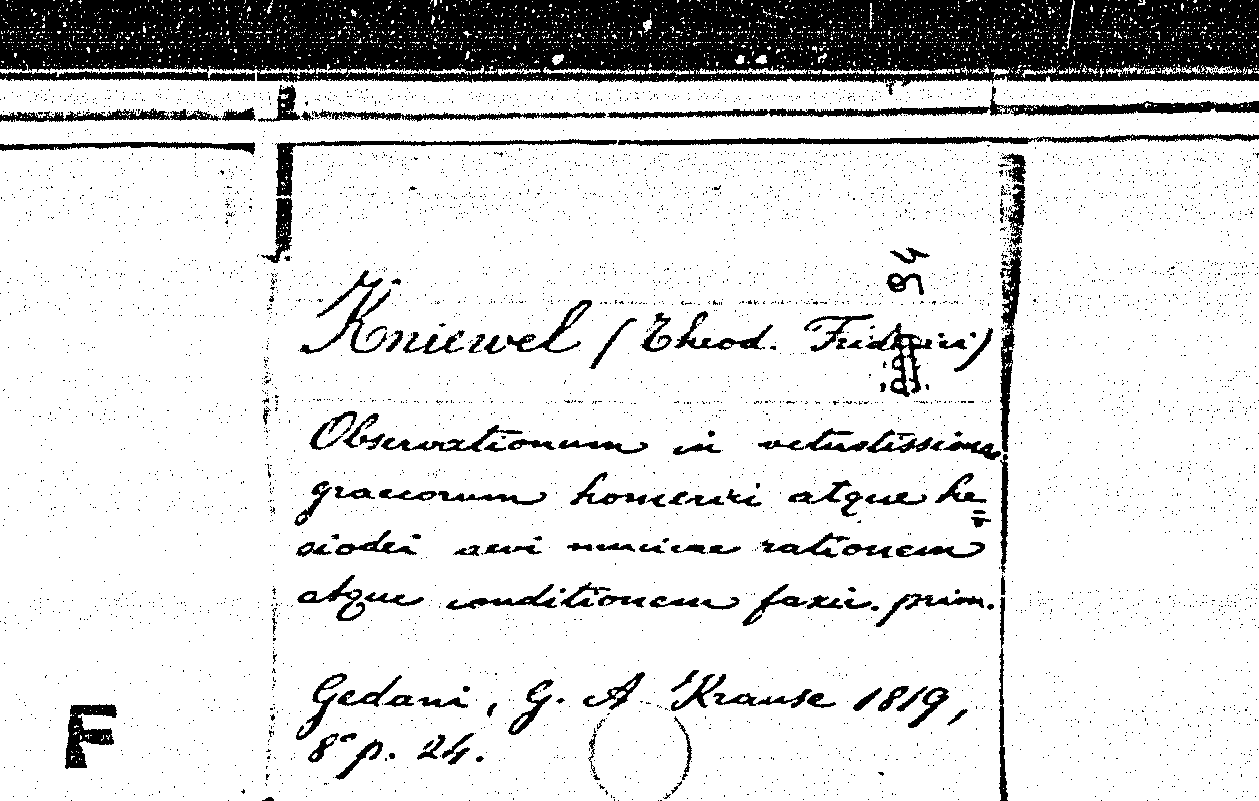 84
Kniewel (Theod. Frideric)
Observationum in vetustissimae
graecorum homerici atque he=
siodei aevi musicae rationem
atque conditionem fascic. prim.
Gedani, G. A Krause 1819,
8° p. 24.
F